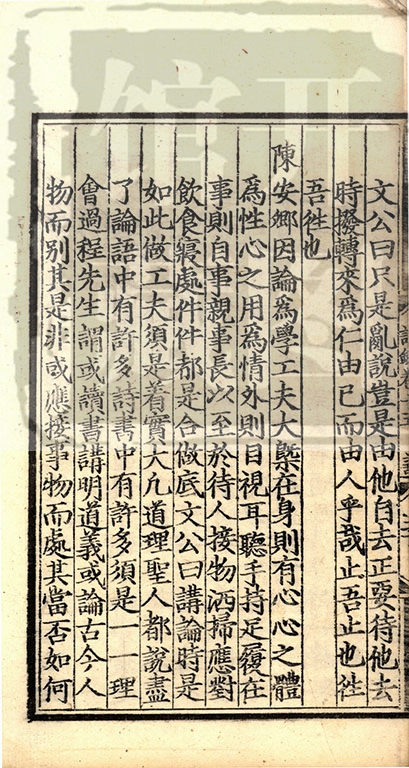 文公曰只是亂說豈是由他自去正要待他去
時撥轉來爲仁由己而由人乎哉止吾止也徃
吾徃也
陳安鄉因論爲學工夫大槩在身則有心心之體
爲性心之用爲情外則目視耳聽手持足履在
事則自事親事長以至於待人接物洒掃應對
飲食寢處件件都是合做底文公曰講論時是
如此做工夫須是着實大凡道理聖人都說盡
了論語中有許多詩書中有許多須是一一理
會過程先生謂或讀書講明道義或論古今人
物而別其是非或應接事物而處其當否如何